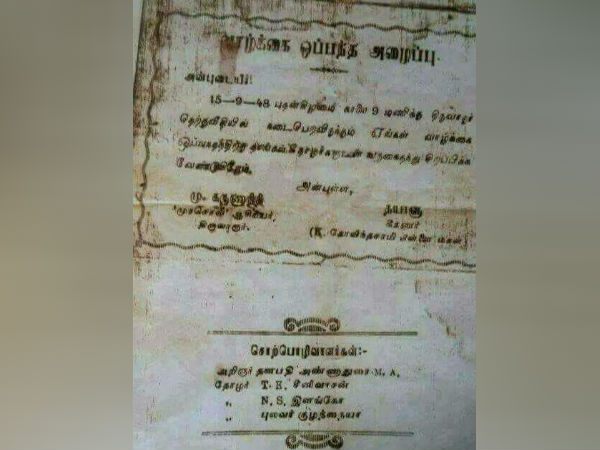 வாழ்க்கை ஒப்பந்த அழைப்பு
அன்புடையீர்!
15-9-48 புதன்கிழமை காலை 9 மணிக்கு திருவாரூர்
தெற்குவீதியில் நடைபெறவிருக்கும் எங்கள் வாழ்க்கை
ஒப்பந்தத்திற்கு தாங்கள் தோழர்களுடன் வருகைதந்து சிறப்பிக்க
வேண்டுகிறோம்.
அன்புள்ள,
மு. கருணாநிதி
'முரசொலி' ஆசிரியர்,
திருவாரூர்.
தயாளு
(K. கோவிந்தசாமி பிள்ளை மகள்)
சொற்பொழிவாளர்கள்:-
அறிஞர் தளபதி அண்ணாதுரை M. A.
தோழர் T. K. சீனிவாசன்
,, N. S. இளங்கோ
,, புலவர் குழந்தையா